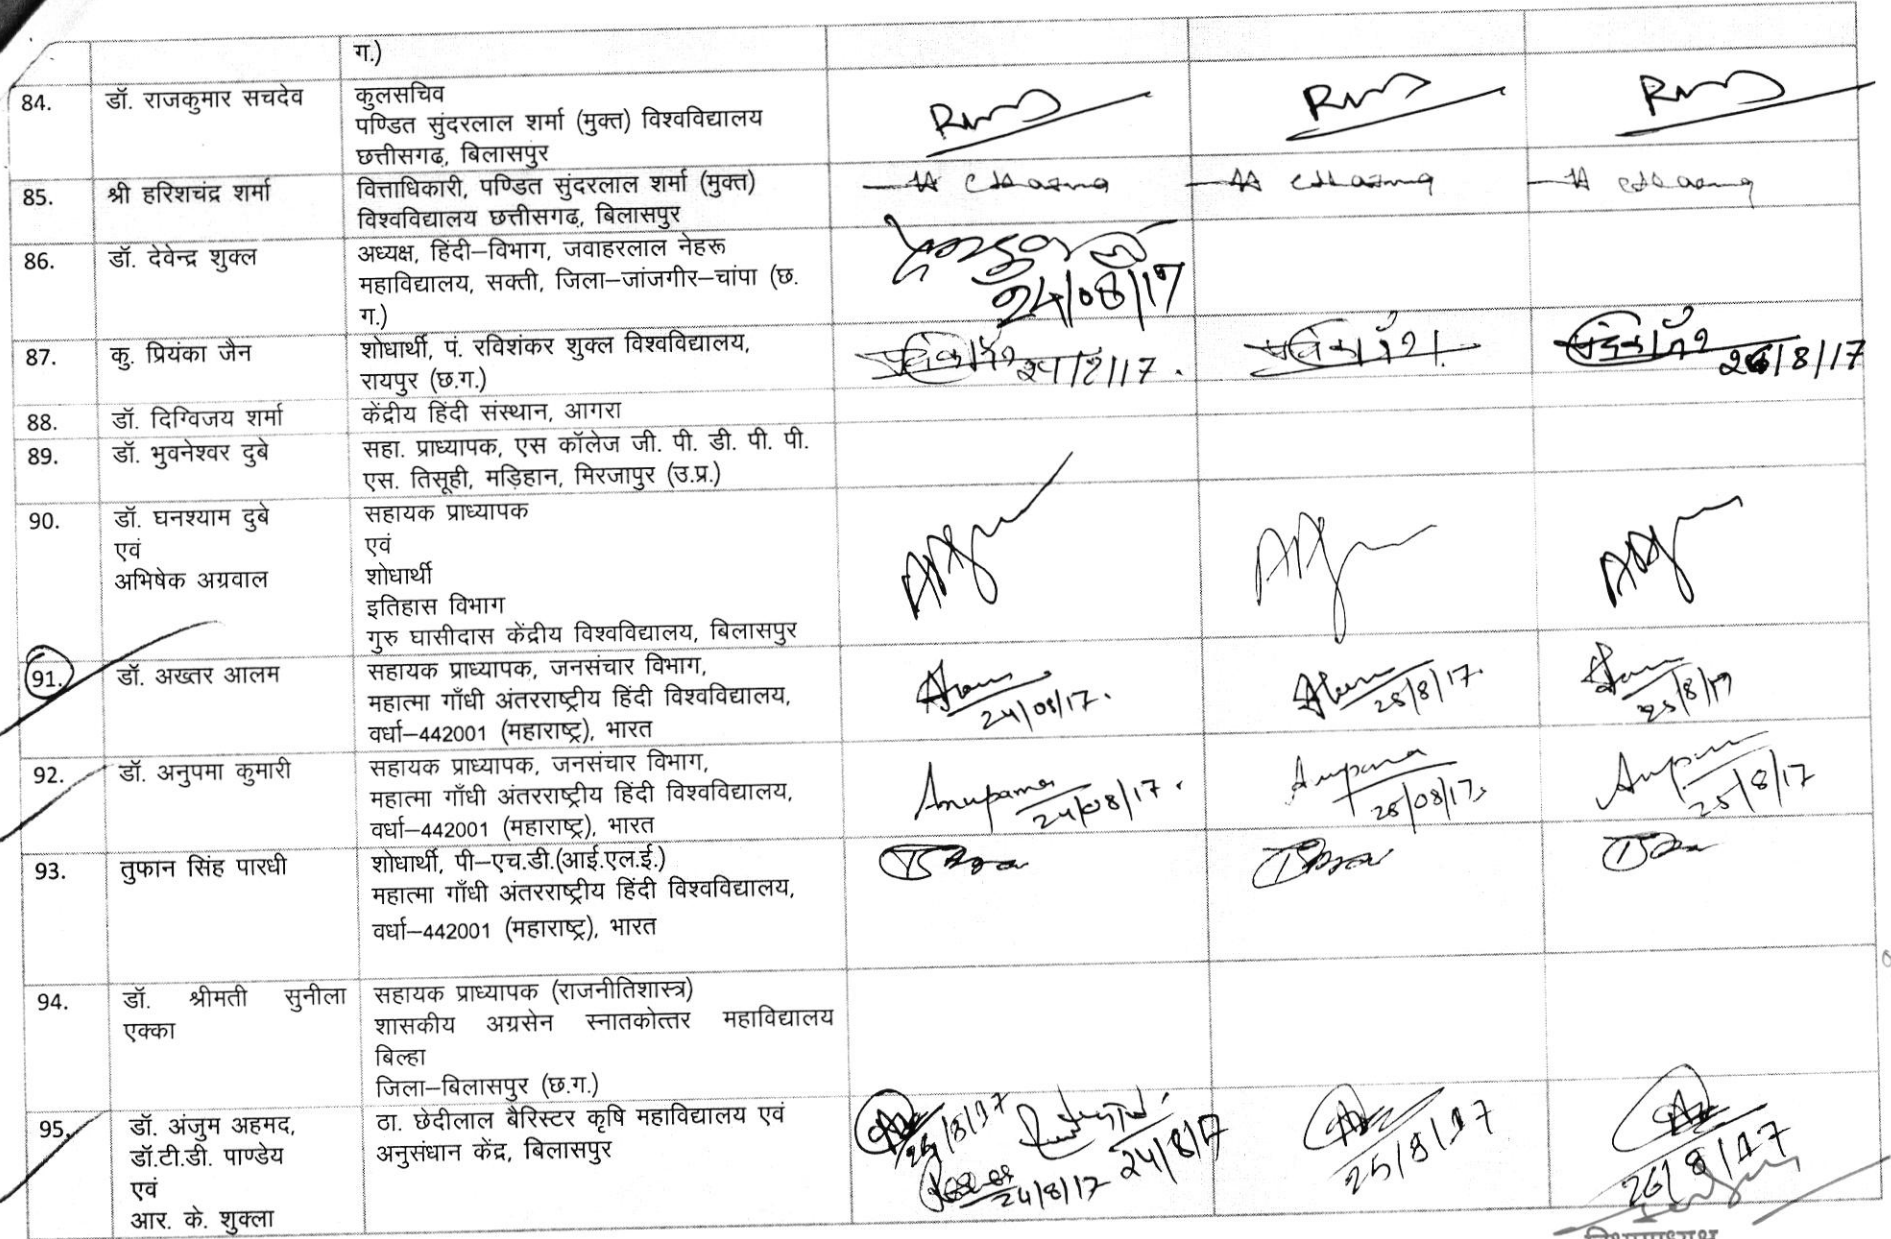 ग.)
84. डॉ. राजकुमार सचदेव
कुलसचिव
पण्डित सुंदरलाल शर्मा (मुक्त) विश्वविद्यालय
छत्तीसगढ, बिलासपुर
85. श्री हरिशचंद्र शर्मा
वित्ताधिकारी, पण्डित सुंदरलाल शर्मा (मुक्त)
विश्वविद्यालय छत्तीसगढ, बिलासपुर
86. डॉ. देवेन्द्र शुक्ल
अध्यक्ष, हिंदी–विभाग, जवाहरलाल नेहरू
महाविद्यालय, सक्ती, जिला–जांजगीर–चांपा (छ.
ग.)
24/08/17
87. कु. प्रियंका जैन
शोधार्थी, पं. रविशंकर शुक्ल विश्वविद्यालय,
रायपुर (छ.ग.)
26/8/17
88. डॉ. दिग्विजय शर्मा
केंद्रीय हिंदी संस्थान, आगरा
89. डॉ. भुवनेश्वर दुबे
सहा. प्राध्यापक, एस कॉलेज जी. पी. डी. पी. पी.
एस. तिसूही, मड़िहान, मिरजापुर (उ.प्र.)
90. डॉ. घनश्याम दुबे
एवं
अभिषेक अग्रवाल
सहायक प्राध्यापक
एवं
शोधार्थी
इतिहास विभाग
गुरु घासीदास केंद्रीय विश्वविद्यालय, बिलासपुर
91. डॉ. अख्तर आलम
सहायक प्राध्यापक, जनसंचार विभाग,
महात्मा गाँधी अंतरराष्ट्रीय हिंदी विश्वविद्यालय,
वर्धा–442001 (महाराष्ट्र), भारत
24/08/17. 25/8/17. 25/8/17
92. डॉ. अनुपमा कुमारी
सहायक प्राध्यापक, जनसंचार विभाग,
महात्मा गाँधी अंतरराष्ट्रीय हिंदी विश्वविद्यालय,
वर्धा–442001 (महाराष्ट्र), भारत
Anupama Anupama
24/08/17. 25/08/17 25/8/17
93. तुफान सिंह पारधी
शोधार्थी, पी–एच.डी.(आई.एल.ई.)
महात्मा गाँधी अंतरराष्ट्रीय हिंदी विश्वविद्यालय,
वर्धा–442001 (महाराष्ट्र), भारत
94. डॉ. श्रीमती सुनीला
एक्का
सहायक प्राध्यापक (राजनीतिशास्त्र)
शासकीय अग्रसेन स्नातकोत्तर महाविद्यालय
बिल्हा
जिला–बिलासपुर (छ.ग.)
95. डॉ. अंजुम अहमद,
डॉ.टी.डी. पाण्डेय
एवं
आर. के. शुक्ला
ठा. छेदीलाल बैरिस्टर कृषि महाविद्यालय एवं
अनुसंधान केंद्र, बिलासपुर
24/8/17 24/8/17 25/8/17 26/8/17